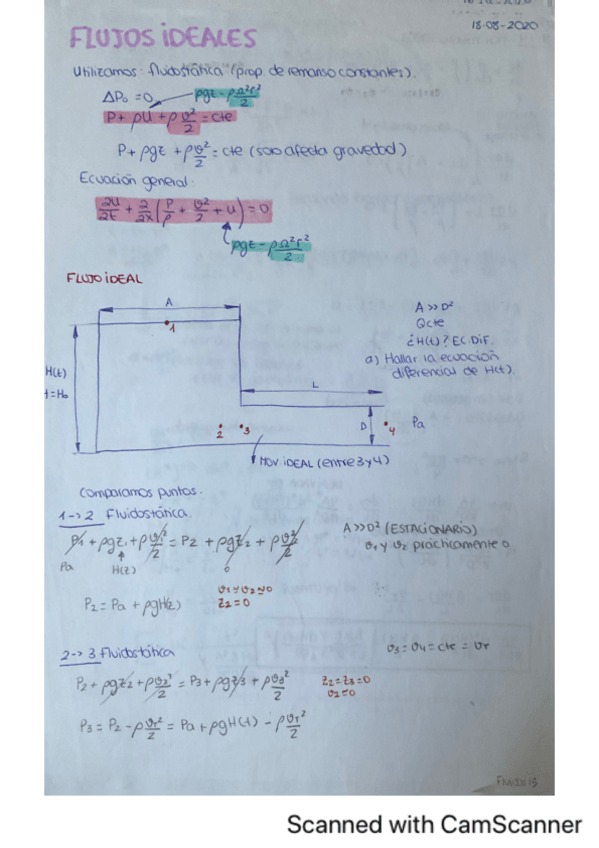 18-08-2020
FLUJOS IDEALES
Utilizamos fluidostática (prop. de remanso constantes).
ΔP₀ = 0 ρgz - ρΩ²r²/2
P + ρU + ρ v²/2 = cte
P + ρgz + ρ v²/2 = cte (solo afecta gravedad)
Ecuación general:
∂U/∂t + ∂/∂x (P/ρ + v²/2 + U) = 0
ρgz - ρΩ²r²/2
FLUJO IDEAL
A
1
H(t)
t=H₀
A >> D²
Qcte
¿H(t)? EC. DIF.
a) Hallar la ecuación
diferencial de H(t).
L
D
2
3
4
Pa
MOV. IDEAL (entre 3 y 4)
Comparamos puntos.
1->2 Fluidostática.
P1 + ρgz1 + ρ v1²/2 = P2 + ρgz2 + ρ v2²/2
Pa H(z) 0
A>>D² (ESTACIONARIO)
v1 y v2 prácticamente 0
P2 = Pa + ρgH(z)
v1 ≃ v2 ≃ 0
z2 = 0
2->3 Fluidostática
v3 = v4 = cte = vr
P2 + ρgz2 + ρ v2²/2 = P3 + ρgz3 + ρ v3²/2
z2 = z3 = 0
v2 ≃ 0
P3 = P2 - ρ vr²/2 = Pa + ρgH(t) - ρ vr²/2
Scanned with CamScanner